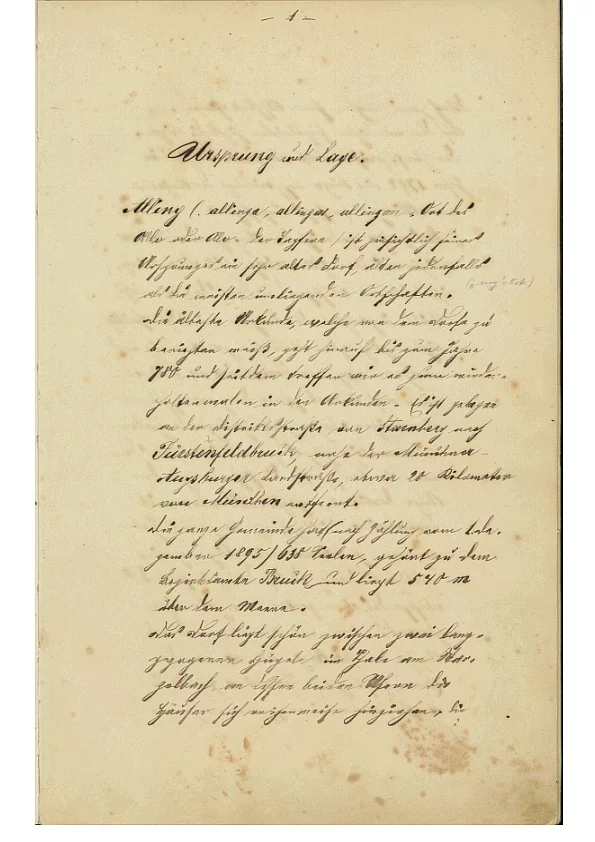 - 1 -
Ursprung und Lage.
Alling (: allinga, allingas, allingon, Ort des
Allo oder Alo - der Tapfere / ist hinsichtlich seines
Ursprunges ein sehr altes Dorf, älter jedenfalls
als die meisten umliegenden Ortschaften.
Die älteste Urkunde, welche von dem Dorfe zu
berichten weiß, geht hinauf bis zum Jahre
780 und seitdem treffen wir es zum wieder-
holtenmalen in den Urkunden. Es ist gelegen
an der Distriktsstraße von Starnberg nach
Fürstenfeldbruck, nahe der Münchner-
Augsburger Landstraße, etwa 20 Kilometer
von München entfernt.
Die ganze Gemeinde hat (nach Zählung vom 1. De-
zember 1895) 638 Seelen, gehört zu dem
Bezirksamte Bruck und liegt 540 m
über dem Meere.
Das Dorf liegt schön zwischen zwei lang-
gezogenen Hügeln im Thale am Star-
zelbach, an dessen beiden Ufern die
Häuser sich reihenweise hinziehen, die